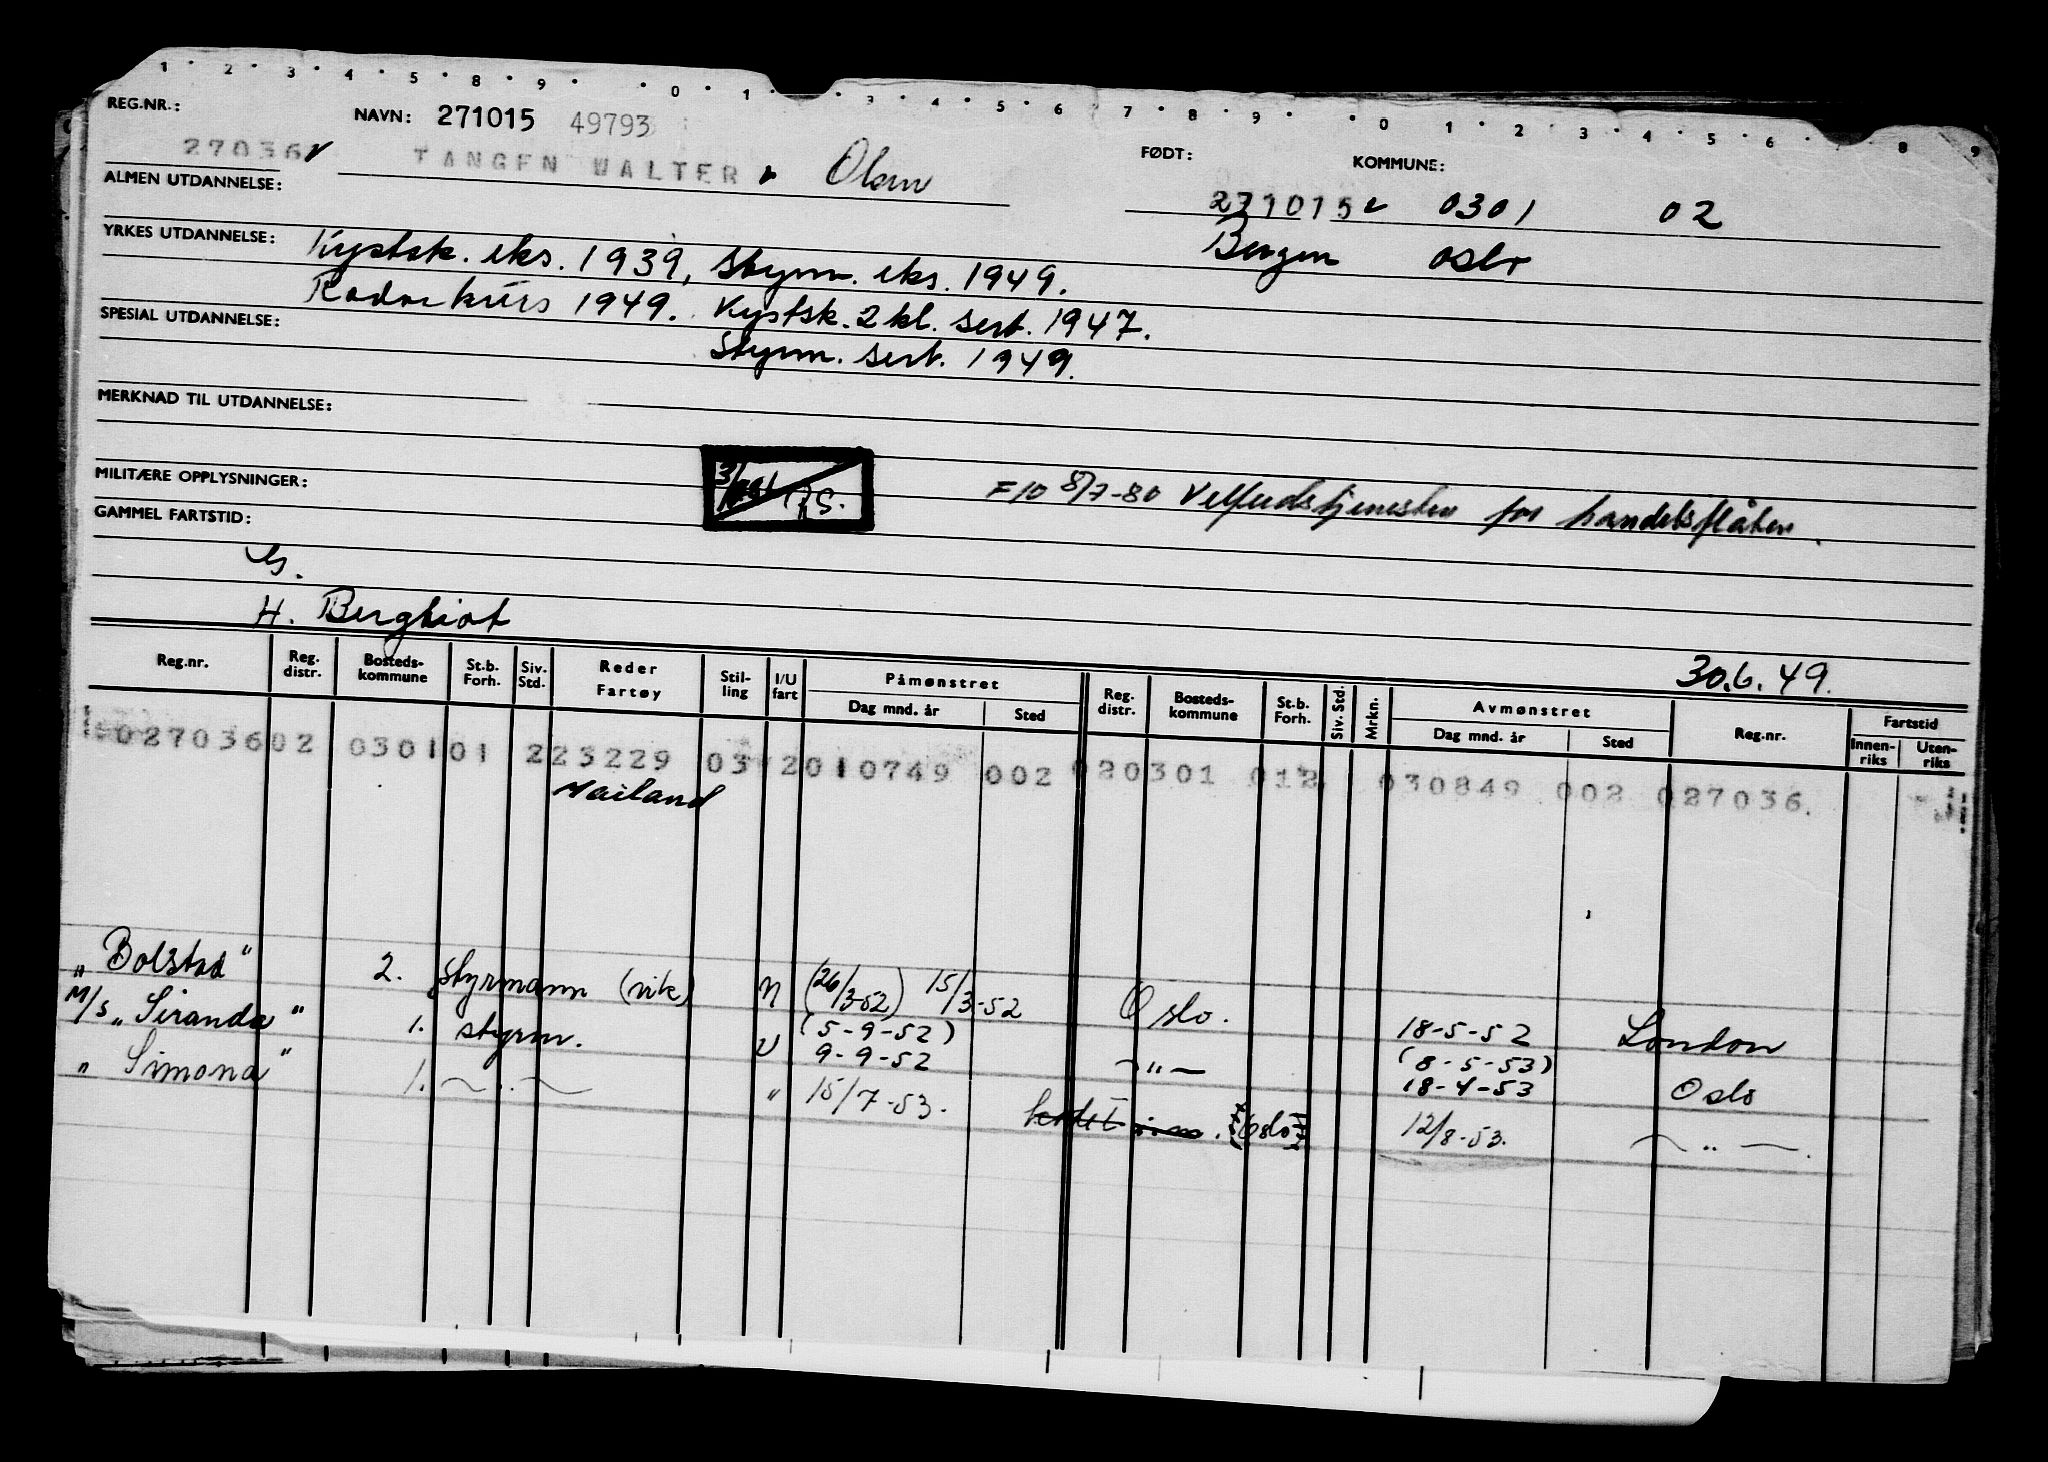 1 · 2 · 3 · 4 · 5 · 8 · 9 · · 0 · 1 · · 3 · 4 · 5 · 6 · 7 · 8 · 9 · · 0 · 1 · 2 · 3 · 4 · 5 · 6 · · 8 · 9
REG.NR.: NAVN: 271015 49793 FØDT: KOMMUNE:
27036 TANGEN WALTER Olsen 271015 0301 02
ALMEN UTDANNELSE: Bergen Oslo
YRKES UTDANNELSE: Kystsk. eks. 1939, Styrm. eks. 1949.
Radarkurs 1949. Kystsk. 2 kl. sert. 1947.
SPESIAL UTDANNELSE: Styrm. sert. 1949.
MERKNAD TIL UTDANNELSE:
MILITÆRE OPPLYSNINGER: F10 8/7-80 Velferdstjenesten for handelsflåten.
GAMMEL FARTSTID:
G.
H. Bergliot
30.6.49.
Reg.nr. Reg. distr. Bosteds-kommune St.b. Forh. Siv. Std. Reder Fartøy Stil-ling I/U fart Påmønstret Dag mnd. år Sted Reg. distr. Bosteds-kommune St.b. Forh. Siv. Std. Mrkn. Avmønstret Dag mnd. år Sted Reg.nr. Fartstid Innen-riks Uten-riks
02703602 030101 223229 03 2010749 002 020301 012 030849 002 027036.
Vailand
„Bolstad" 2. styrmann (vik) N (26/3-52) 15/3-52 Oslo. 18-5-52 London
M/S „Siranda" 1. styrm. U (5-9-52) 9-9-52 ~"~ (8-5-53) 18-4-53 Oslo
„ Simona" 1. ~ . ~ " 15/7-53. (Oslo) 12/8-53. ~ " ~.